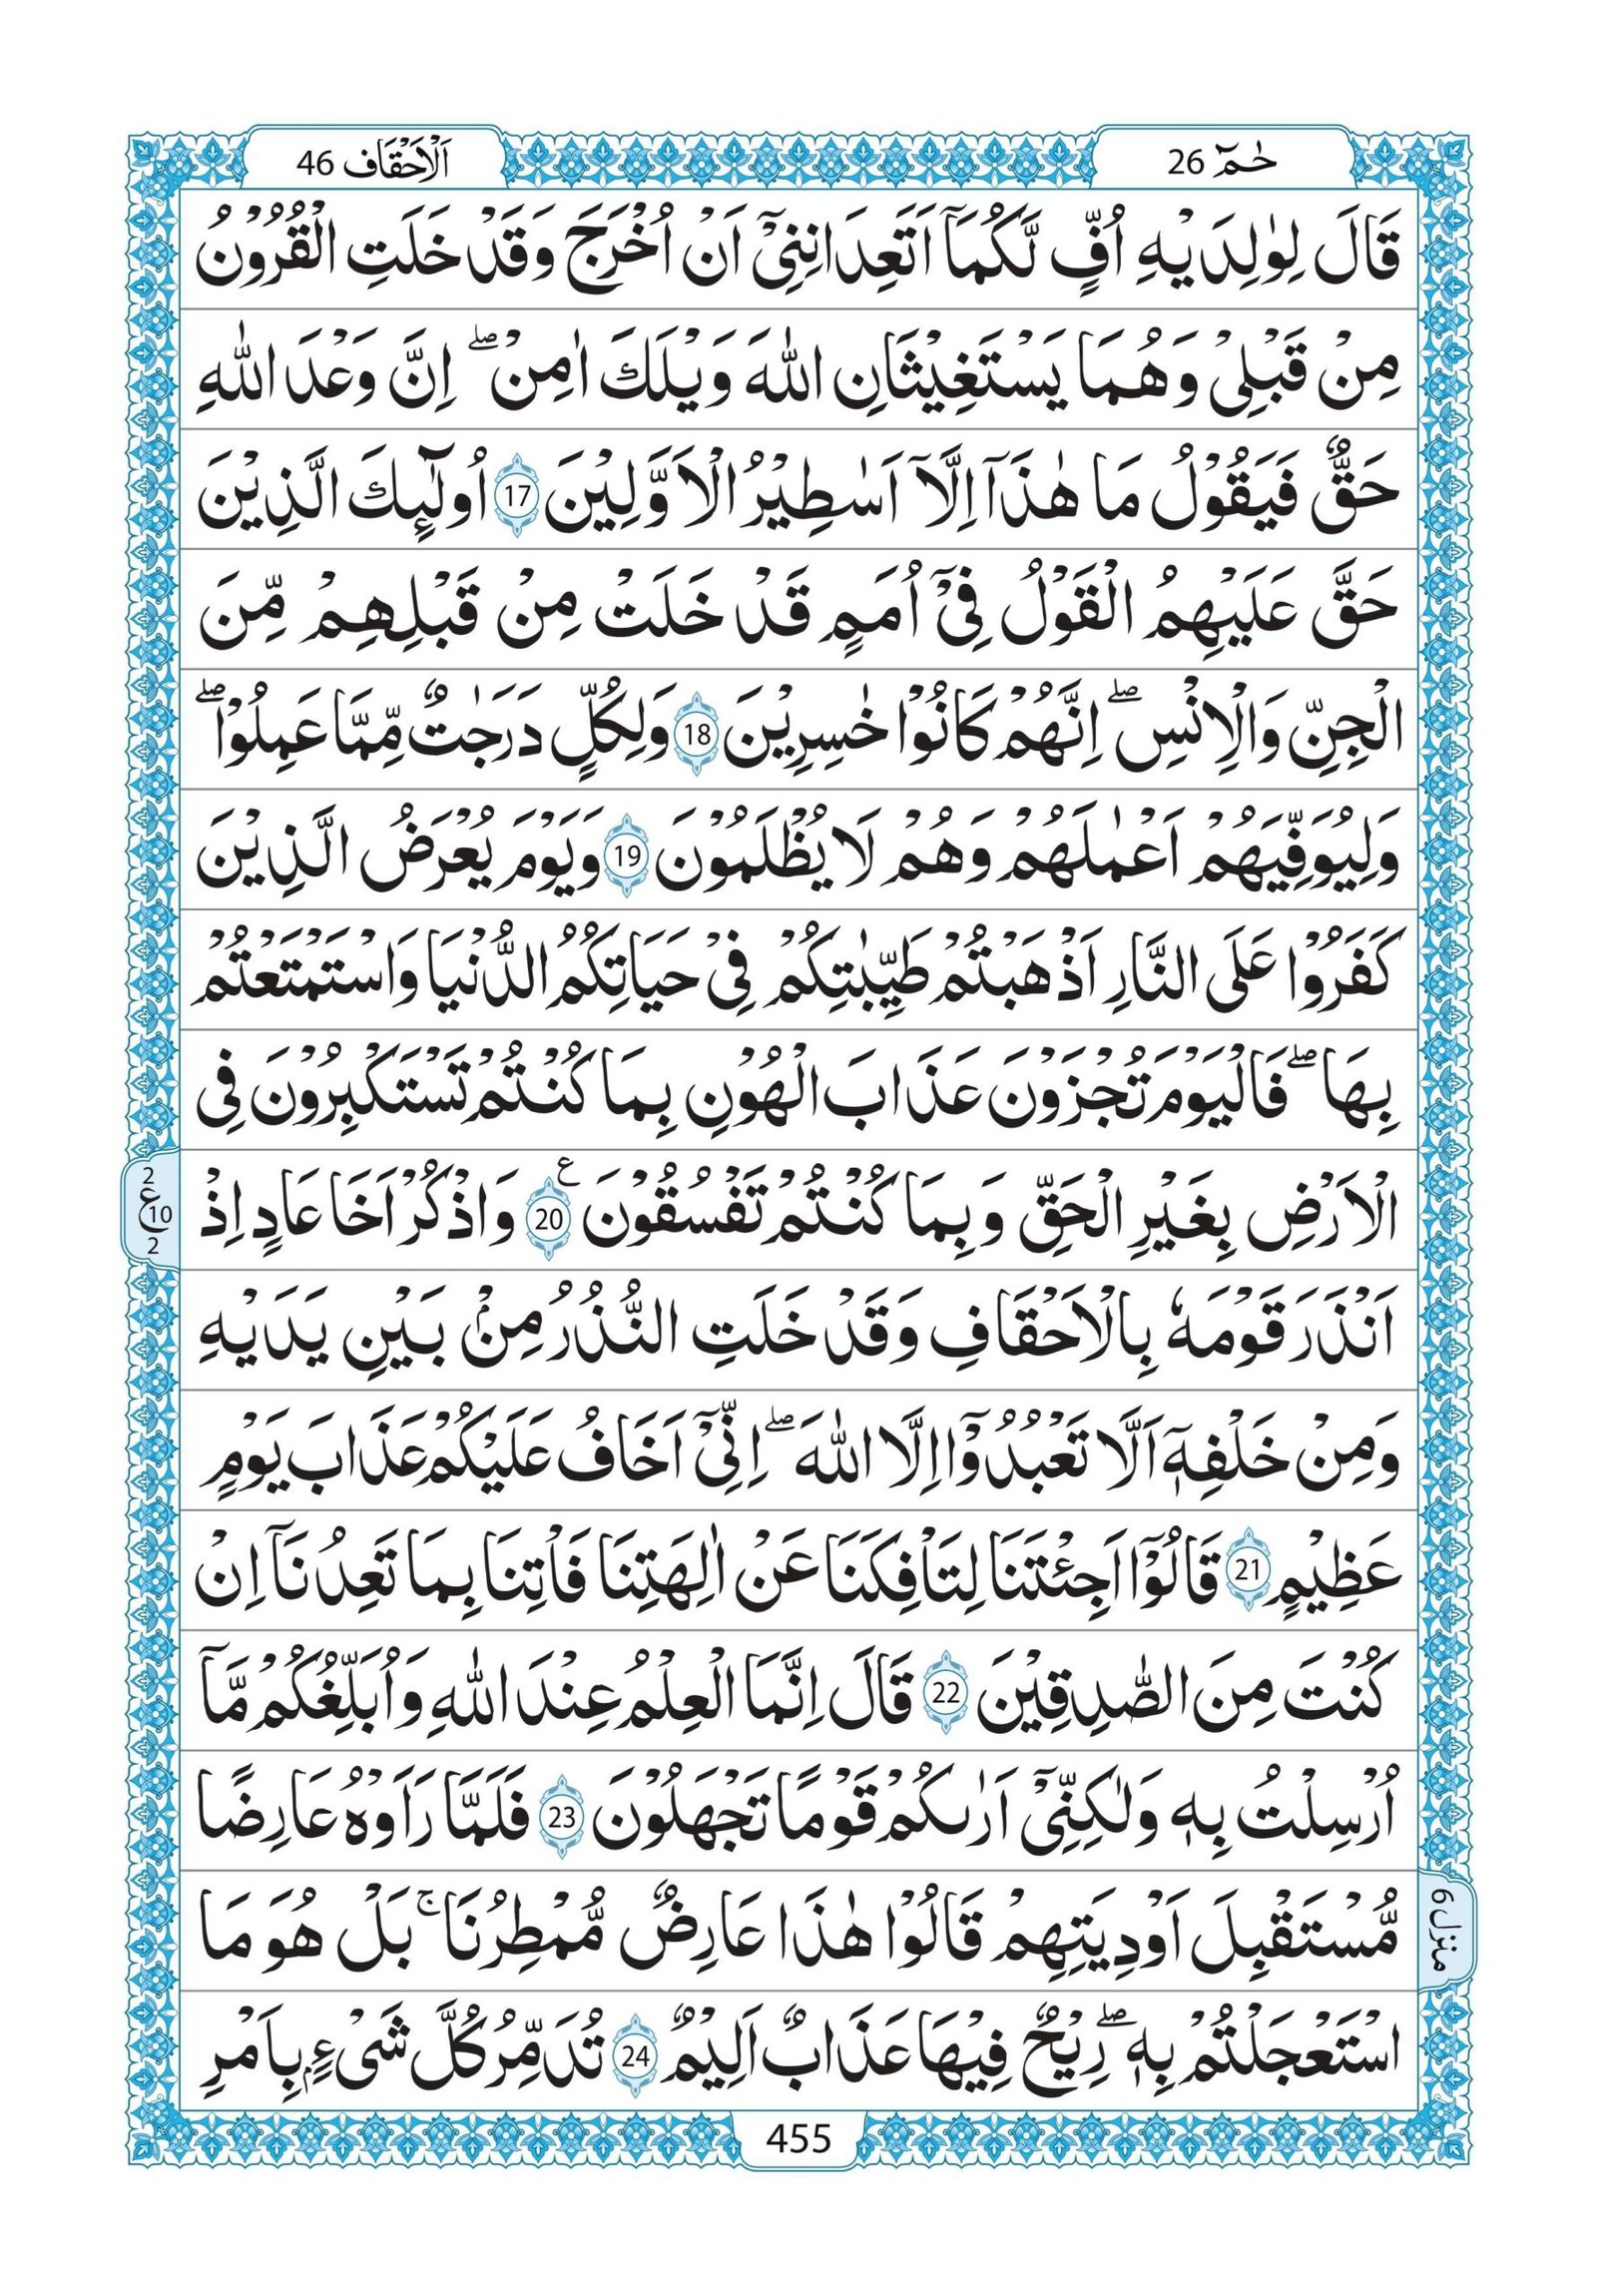 حٰمٓ 26
اَلْاَحْقَاف 46
قَالَ لِوٰلِدَيْهِ اُفٍّ لَّكُمَآ اَتَعِدَانِنِيْٓ اَنْ اُخْرَجَ وَقَدْ خَلَتِ الْقُرُوْنُ
مِنْ قَبْلِيْ وَهُمَا يَسْتَغِيْثَانِ اللّٰهَ وَيْلَكَ اٰمِنْ ۖ اِنَّ وَعْدَ اللّٰهِ
حَقٌّ فَيَقُوْلُ مَا هٰذَآ اِلَّآ اَسٰطِيْرُ الْاَوَّلِيْنَ 17 اُولٰٓئِكَ الَّذِيْنَ
حَقَّ عَلَيْهِمُ الْقَوْلُ فِيْٓ اُمَمٍ قَدْ خَلَتْ مِنْ قَبْلِهِمْ مِّنَ
الْجِنِّ وَالْاِنْسِ ۖ اِنَّهُمْ كَانُوْا خٰسِرِيْنَ 18 وَلِكُلٍّ دَرَجٰتٌ مِّمَّا عَمِلُوْا ۖ
وَلِيُوَفِّيَهُمْ اَعْمٰلَهُمْ وَهُمْ لَا يُظْلَمُوْنَ 19 وَيَوْمَ يُعْرَضُ الَّذِيْنَ
كَفَرُوْا عَلَى النَّارِ اَذْهَبْتُمْ طَيِّبٰتِكُمْ فِيْ حَيَاتِكُمُ الدُّنْيَا وَاسْتَمْتَعْتُمْ
بِهَا ۖ فَالْيَوْمَ تُجْزَوْنَ عَذَابَ الْهُوْنِ بِمَا كُنْتُمْ تَسْتَكْبِرُوْنَ فِي
الْاَرْضِ بِغَيْرِ الْحَقِّ وَبِمَا كُنْتُمْ تَفْسُقُوْنَ ع 20 وَاذْكُرْ اَخَا عَادٍ اِذْ
2
ع 10
2
اَنْذَرَ قَوْمَهٗ بِالْاَحْقَافِ وَقَدْ خَلَتِ النُّذُرُ مِنْۢ بَيْنِ يَدَيْهِ
وَمِنْ خَلْفِهٖٓ اَلَّا تَعْبُدُوْٓا اِلَّا اللّٰهَ ۖ اِنِّيْٓ اَخَافُ عَلَيْكُمْ عَذَابَ يَوْمٍ
عَظِيْمٍ 21 قَالُوْٓا اَجِئْتَنَا لِتَاْفِكَنَا عَنْ اٰلِهَتِنَا فَاْتِنَا بِمَا تَعِدُنَآ اِنْ
كُنْتَ مِنَ الصّٰدِقِيْنَ 22 قَالَ اِنَّمَا الْعِلْمُ عِنْدَ اللّٰهِ وَاُبَلِّغُكُمْ مَّآ
اُرْسِلْتُ بِهٖ وَلٰكِنِّيْٓ اَرٰىكُمْ قَوْمًا تَجْهَلُوْنَ 23 فَلَمَّا رَاَوْهُ عَارِضًا
مُّسْتَقْبِلَ اَوْدِيَتِهِمْ قَالُوْا هٰذَا عَارِضٌ مُّمْطِرُنَا ۚ بَلْ هُوَ مَا
منزل 6
اسْتَعْجَلْتُمْ بِهٖ ۖ رِيْحٌ فِيْهَا عَذَابٌ اَلِيْمٌ 24 تُدَمِّرُ كُلَّ شَيْءٍۢ بِاَمْرِ
455